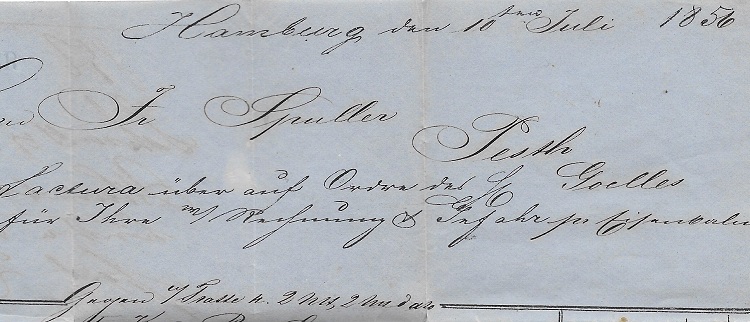 Hamburg den 10ten Juli 1856
Fr Spuller
Pesth
Factura über auf Ordre des H Goelles
für Ihre w/ Rechnung & Gefahr pr Eisenbahn
Gegen / Tratte 2 Mt, 2 Mt dato